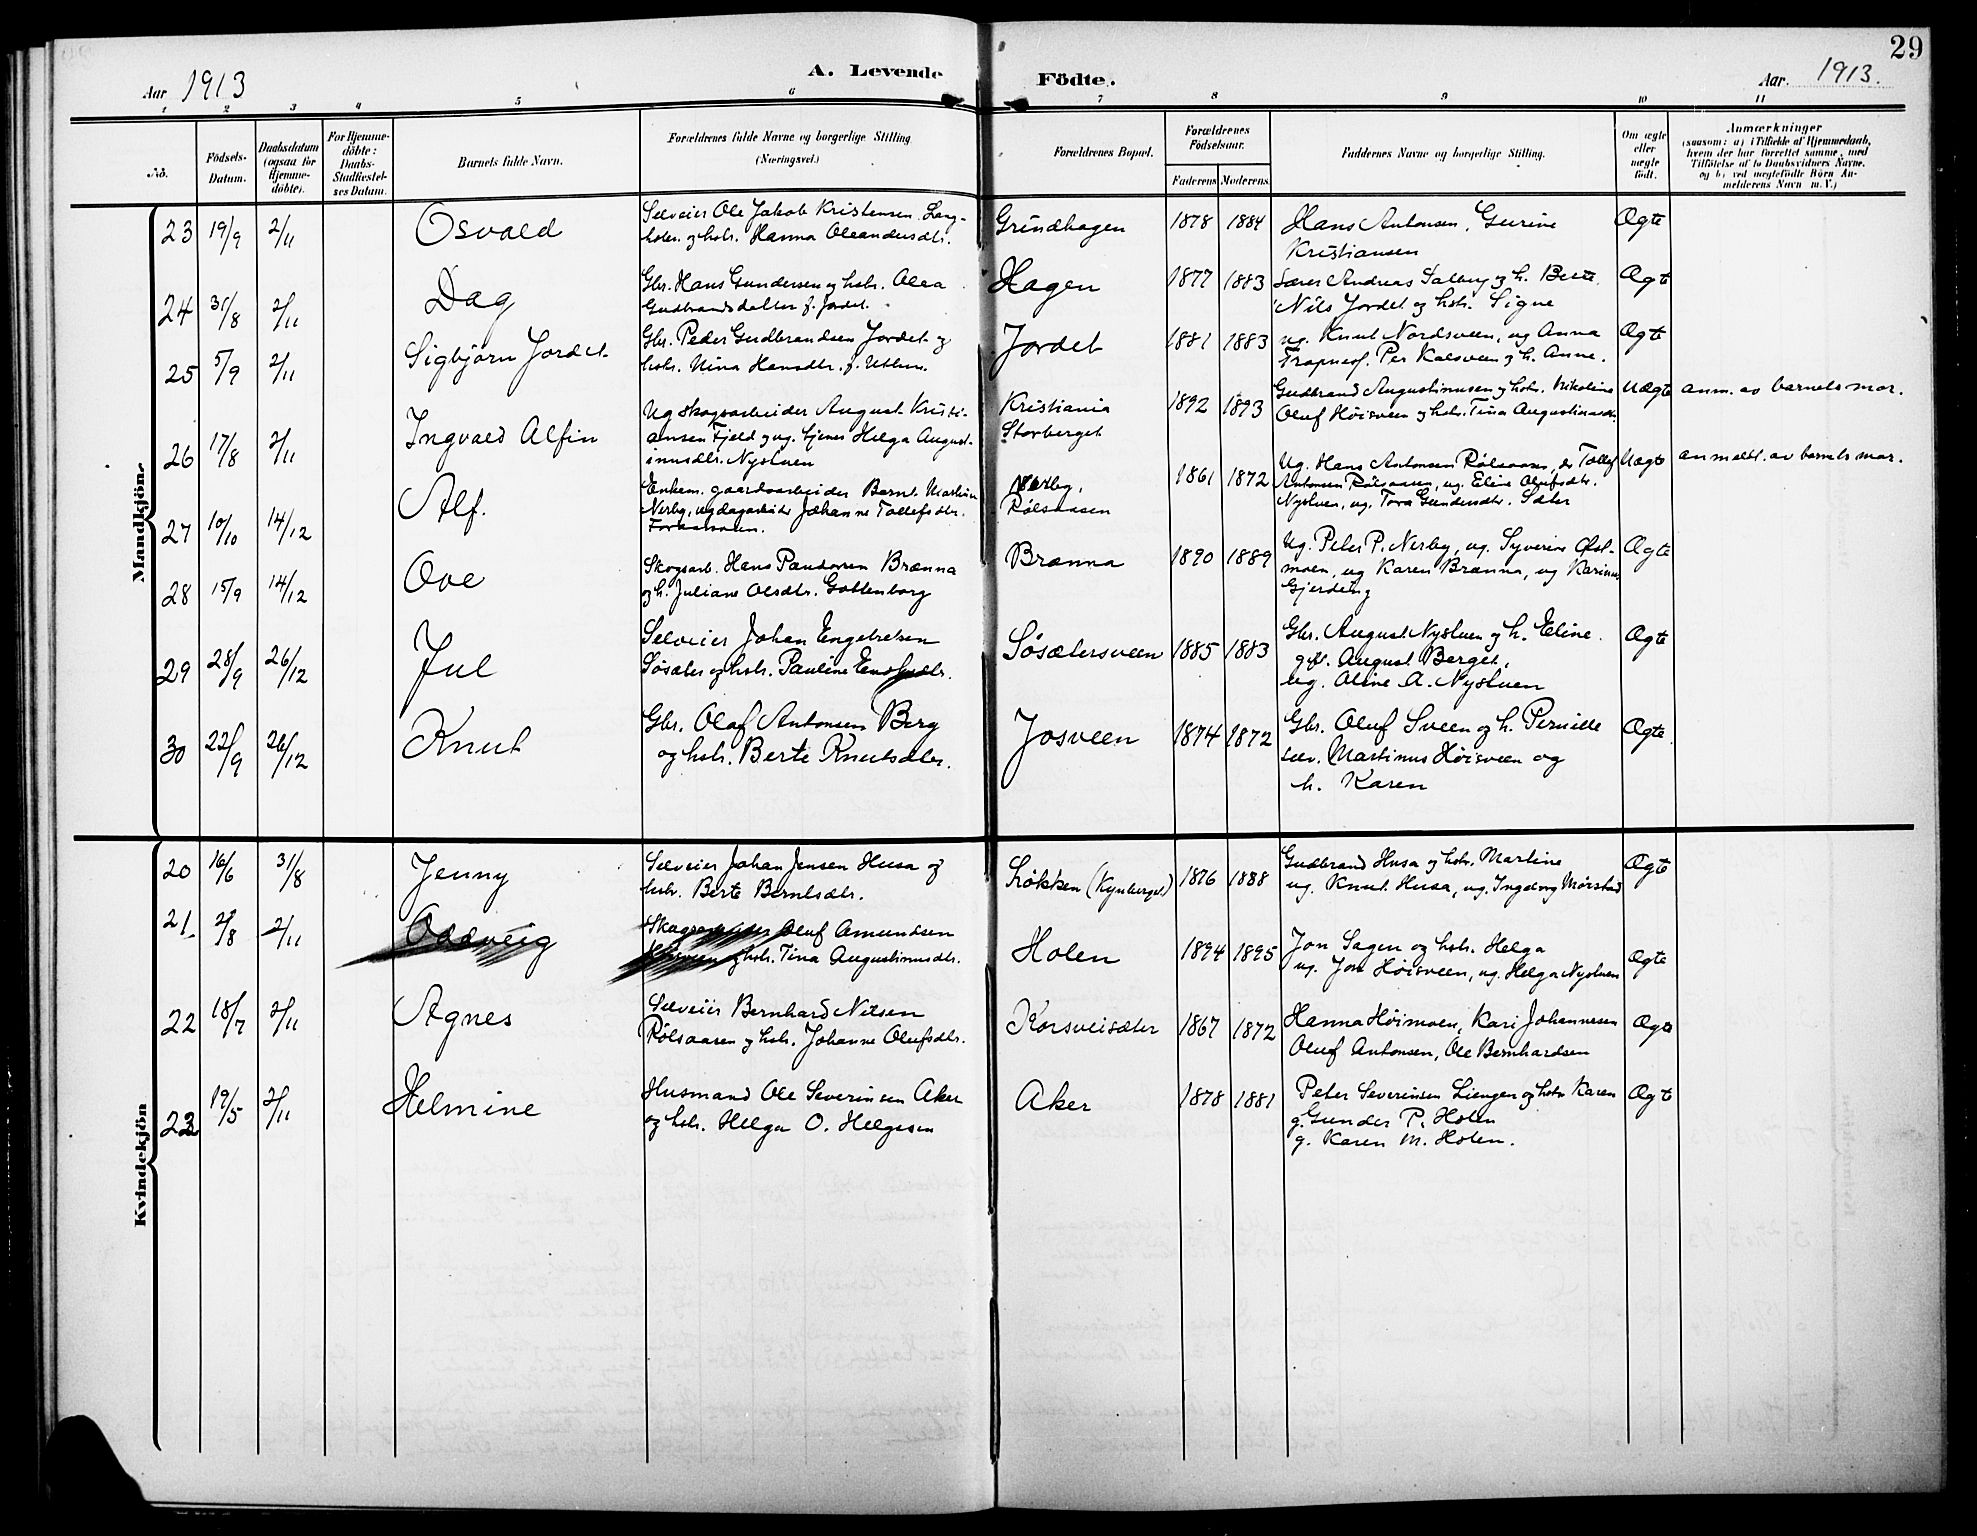 29
Aar 1913
A. Levende Födte.
Aar. 1913.
1 2 3 4 5 6 7 8 9 10 11
No.
Födsels-
Datum.
Daabsdatum
(ogsaa for
Hjemme-
döbte).
For Hjemme-
döbte:
Daabs-
Stadfæstel-
ses Datum.
Barnets fulde Navn.
Forældrenes fulde Navne og borgerlige Stilling
(Næringsvei.)
Forældrenes Bopæl.
Forældrenes
Födselsaar.
Faderens Moderens
Faddernes Navne og borgerlige Stilling.
Om ægte
eller
uægte
født.
Anmærkninger
(saasom: a) i Tilfælde af Hjemmedaab,
hvem der har forrettet samme, med
Tilföielse af to Daabsvidners Navne,
og b) ved uægtefödte Börn An-
melderens Navn m. V.)
Mandkjön
23 19/9 2/11 Osvald
Selveier Ole Jakob Kristensen
og hstr. Hanna Oleandersdtr.
Grindhagen 1878 1884
Hans Antonsen, Gurine
Kristiansen
Ægte
24 31/8 2/11 Dag
Gbr. Hans Gundersen og hstr. Olea
Gudbrandsdatter f. Jordet.
Hagen 1877 1883
Lærer Andreas og h. Berte.
Nils Jordet og hstr. Signe
Ægte
25 5/9 2/11 Sigbjørn Jordet
Gbr. Peder Gudbrandsen Jordet og
hstr. Nina Hansdtr. f.
Jordet 1881 1883
ug. Knut Nordsveen, ug Anna
Per Kalsveen og h. Anne.
Ægte
26 17/8 2/11 Ingvald Alfin
Ug skogsarbeider August Kristi-
ansen Fjeld og ug. tjener Helga August-
inusdtr. Nystuen
Kristiania
Storberget
1892 1893
Gudbrand Augustinussen og hstr. Nikoline
Oluf Høisveen og hstr. Tina Augustinusdtr.
Uægte anm. av barnets mor.
27 10/10 14/12 Alf.
Enkem. gaardsarbeider Bernt Martin
Nerby, ug Johanne Tollefsdtr.
Nerby,
Rølsaasen
1861 1872
Ug. Hans Antonsen Rølsaasen, Tollef
Antonsen Rølsaasen, ug. Eline Olufsdtr.
Nystuen, ug. Tora Gundersdtr. Sæter
Uægte anmeldt. av barnets mor.
28 15/9 14/12 Ove
Skogsarb. Hans Brænna
og h. Juliane Olsdtr. Gottenborg
Brænna 1890 1889
Ug. Peter P. Nerby, ug. Syverine
moen, ug Karen Brænna, ug Karinus
Gjerding
Ægte
29 28/9 26/12 Jul
Selveier Johan Engebretsen
Søsæter og hstr. Pauline
Søsætersveen 1885 1883
Gbr. August Nystuen og h. Eline.
August Berget,
ug. Oline A. Nystuen
Ægte
30 22/9 26/12 Knut
Gbr. Olaf Antonsen Berg
og hstr. Berte Knutsdtr.
Josveen 1874 1872
Gbr. Oluf Sveen og h. Pernille
selv. Martinus Høisveen og
h. Karen
Ægte.
Kvindekjön
20 16/6 31/8 Jenny
Selveier Johan Jensen Husa og
hstr. Berte Berntsdtr.
Løkken (Kynberget) 1876 1888
Gudbrand Husa og hstr. Martine
ug. Knut Husa, ug. Ingeborg Mørstad
Ægte
21. 2/8 2/11 Oddveig
Oluf Amundsen
og hstr. Tina Augustinusdtr.
Holen 1894 1895
Jon Sagen og hstr. Helga
ug. Jon Høisveen, ug. Helga Nystuen
Ægte
22 18/7 2/11 Agnes
Selveier Bernhard Nilsen
Rølsaasen og hstr. Johanne Olufsdtr.
Korsveisæter 1867 1872
Hanna Høimoen, Kari Johannesen
Oluf Antonsen, Ole Bernhardsen
Ægte
23 19/5 2/11 Helmine
Husmand Ole Severinsen Aker
og hstr. Helga O. Helgesen
Aker 1878 1881
Peter Severinsen Lienger og hstr Karen
g. Gunder P. Holen
g. Karen M. Holen.
Ægte